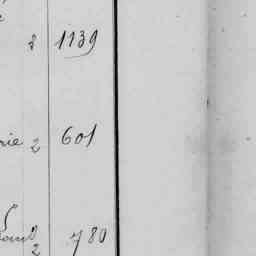 2 1139
rie 2 601
2 780